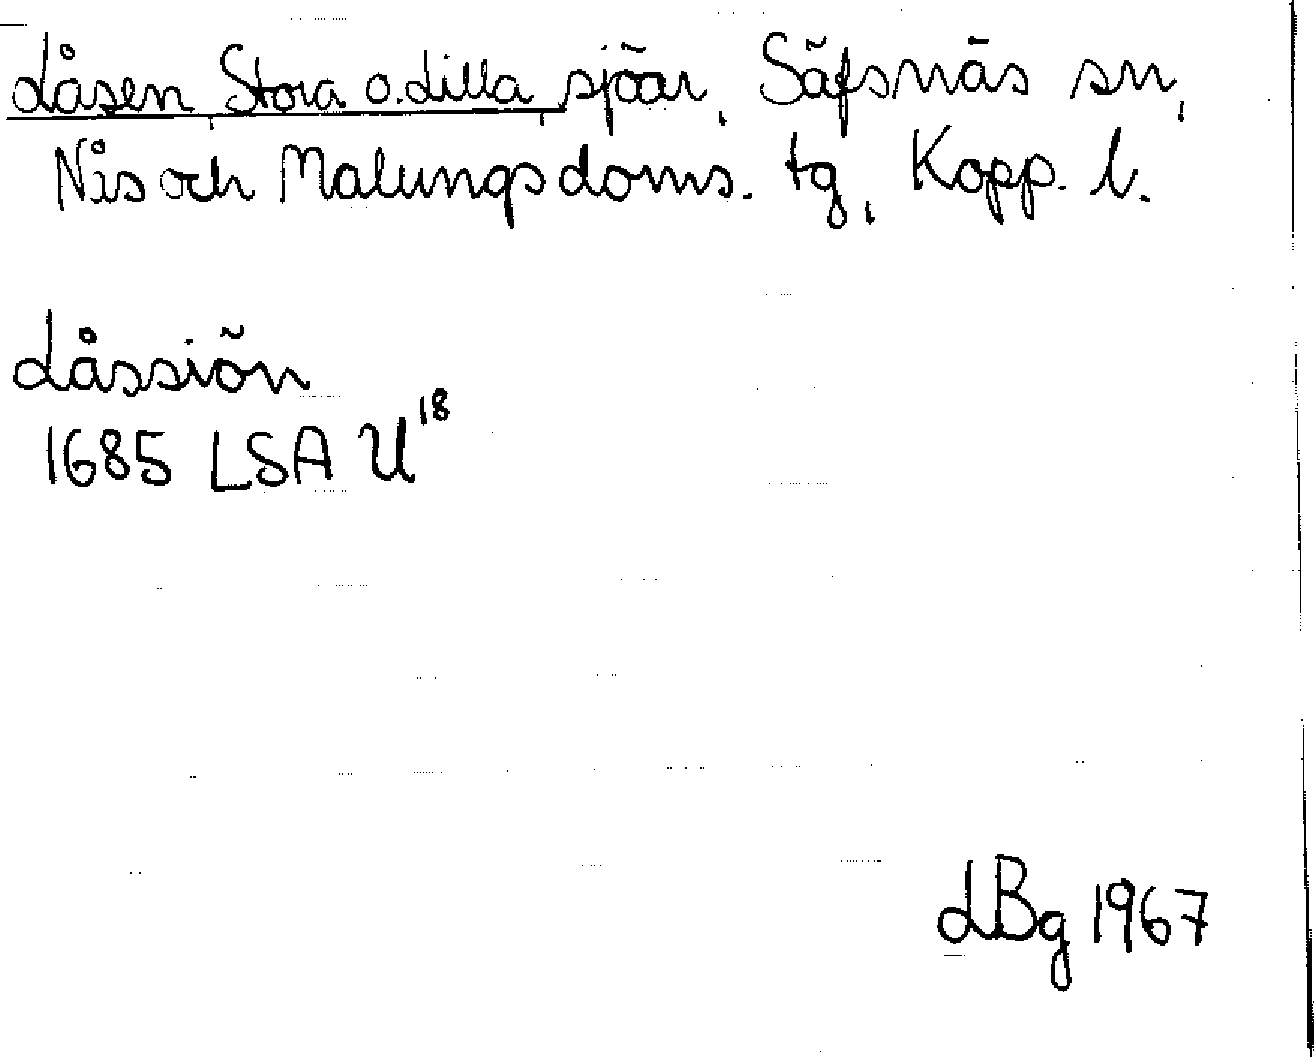 Låsen, Stora o. Lilla, sjöar, Säfsnäs sn,
Nås och Malungs doms. tg, Kopp. l.
Låssiön
1685 LSA U18
LBg 1967